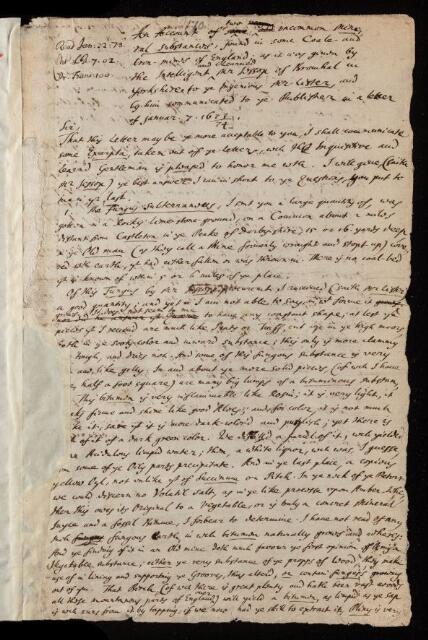 An Account of two uncommon Mine-
Read Jan: 22: 73. ral substances, found in some Coale and
Iron-mines of England; as it was given by
the Intelligent, Mr Jessop of Broomhal in
Yorkshire to ye Ingenious Mr Lister, and
by him communicated to ye Publisher in a letter
of January. 7. 167¾
Sir,
That this letter may be ye more acceptable to you, I shall communicate
some Excerpta, taken out of ye letters, wch that Inquisitive and
learned Gentleman is pleased to honor me with. I will give (saith
Mr Jessop) ye best answer I can in short to ye Questions, you put to
me in yr last.
1. The Fungus subterraneus, I sent you a large quantity of, was
got in a Rocky lime-stone ground, on a Common about 2 miles
distant from Castleton, in ye Peake of Derbyshire, 15 or 16. yards deep
in ye Old man (as they call a Mine formerly wrought and stopt up) cove-
red wth earth, yt had either fallen or was thrown in. There is no coal bed
yt is known of within 5 or 6 miles of ye place.
Of this Fungus by Mr Jessop's procurement, I received (saith Mr Lister)
a good quantity; and yet I am not able to say,
to have any constant shape; at lest ye
pieces yt I received are much like Peats or Turff, cut up in ye high moors
both in ye sooty color and inward substance; this only is more clammy
tough, and dries not. And some of this fungous substance is very
and, like gelly. In and about ye more solid pieces (of wch I have
half a foot square) are many big lumps of a bituminous substance,
This bitumen is very inflammable like Rosin; it is very light, it
firme and shine like good Aloes; and for color, it is not much
like it, save yt it is more dark-colored and purplish; yet there is
of it of a dark green color. We distilled a parcel of it, wch yielded
an Acidulous limpid water; then, a white liquor, wch was, I guesse
some of ye Oily parts precipitate. And in ye last place, a copious
yellow Oyl, not unlike yt of Succinum or Pitch. In ye neck of ye Retort
we could discern no Volatil salt, as in ye like processe upon Amber.
then this owes its Original to a Vegetable, or is only a concrete Mineral
Juyce and a fossil Fungus, I forbear to determine. I have not read of any
such fungous Earth in wch bitumen naturally grows
And ye finding of it in an old mine doth much favour ye first opinion of its being
Vegetable substance; either ye very substance, of ye propps of Wood, they make
use of in lining and supporting ye Grooves, thus altered, or certain funguss's growing
out of ym. That Birch (of wch there is great plenty and hath been vast woods
all those mountanous parts of England) will yield a bitumen, as limpid as ye sap
is wch runs from it by tapping, if we now had ye skil to extract it, Pliny is very